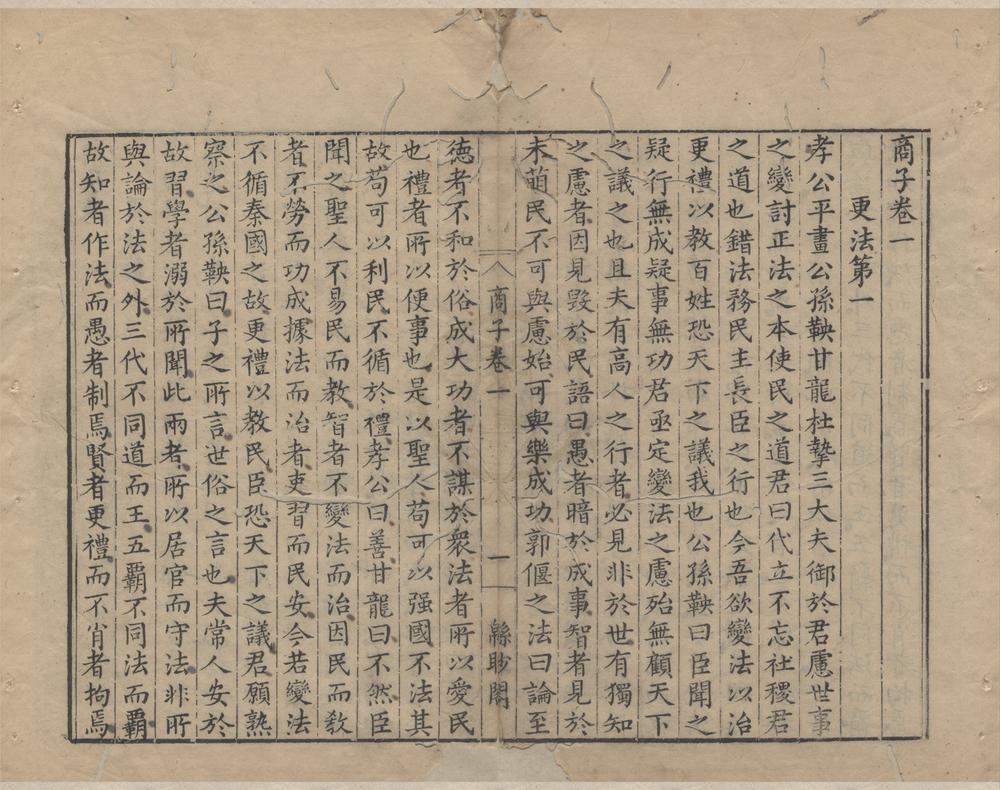 商子卷一
更法第一
孝公平畫公孫鞅甘龍杜摯三大夫御於君慮世事
之變討正法之本使民之道君曰代立不忘社稷君
之道也錯法務民主長臣之行也今吾欲變法以治
更禮以教百姓恐天下之議我也公孫鞅曰臣聞之
疑行無成疑事無功君亟定變法之慮殆無顧天下
之議之也且夫有高人之行者必見非於世有獨知
之慮者因見毀於民語曰愚者暗於成事智者見於
未萌民不可與慮始可與樂成功郭偃之法曰論至
商子卷一
一
緜眇閣
德者不和於俗成大功者不謀於衆法者所以愛民
也禮者所以便事也是以聖人苟可以强國不法其
故苟可以利民不循於禮孝公曰善甘龍曰不然臣
聞之聖人不易民而教智者不變法而治因民而教
者不勞而功成據法而治者吏習而民安今若變法
不循秦國之故更禮以教民臣恐天下之議君願熟
察之公孫鞅曰子之所言世俗之言也夫常人安於
故習學者溺於所聞此兩者所以居官而守法非所
與論於法之外三代不同道而王五霸不同法而霸
故知者作法而愚者制焉賢者更禮而不肖者拘焉